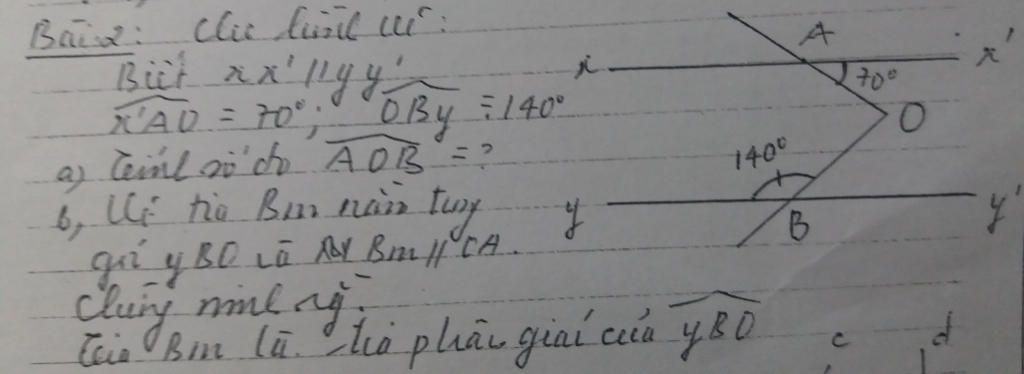 Bài 2: Cho hình vẽ:
Biết xx' // yy'
x'AO = 70°; OBy = 140°
a) Tính số đo AOB = ?
b, Vẽ tia Bm nằm
giữ yBO và Bm // OA.
Chứng minh rằ.
Tia Bm là tia phân giái của yBO
x A x'
70°
O
140°
y B y'
c d